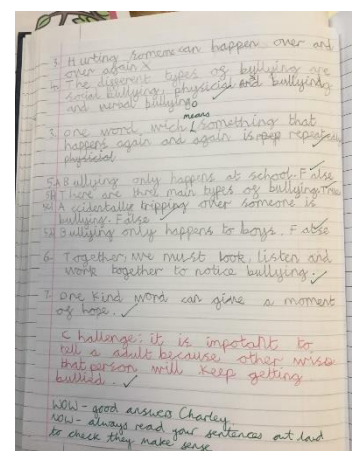 3. Hurting someone can happen over and
over again X
b The different types of bullying are
social bullying, physicial and bullying
and verbal bullying
means
3. one word wich something that
happens again and again is repeatedly
physicial
5A Bullying only happens at school. False
There are three main types of bullying. True
Accidentally tripping over someone is
bullying. False
Bullying only happens to boys. False
6. Together, we must look, listen and
work together to notice bullying.
7. One kind word can give a moment
of hope.
Challenge: it is impotant to
tell a adult because other wise
that person will keep getting
bullied.
WOW - good answer Charley
NOW - always read your sentences out loud
to check they make sense